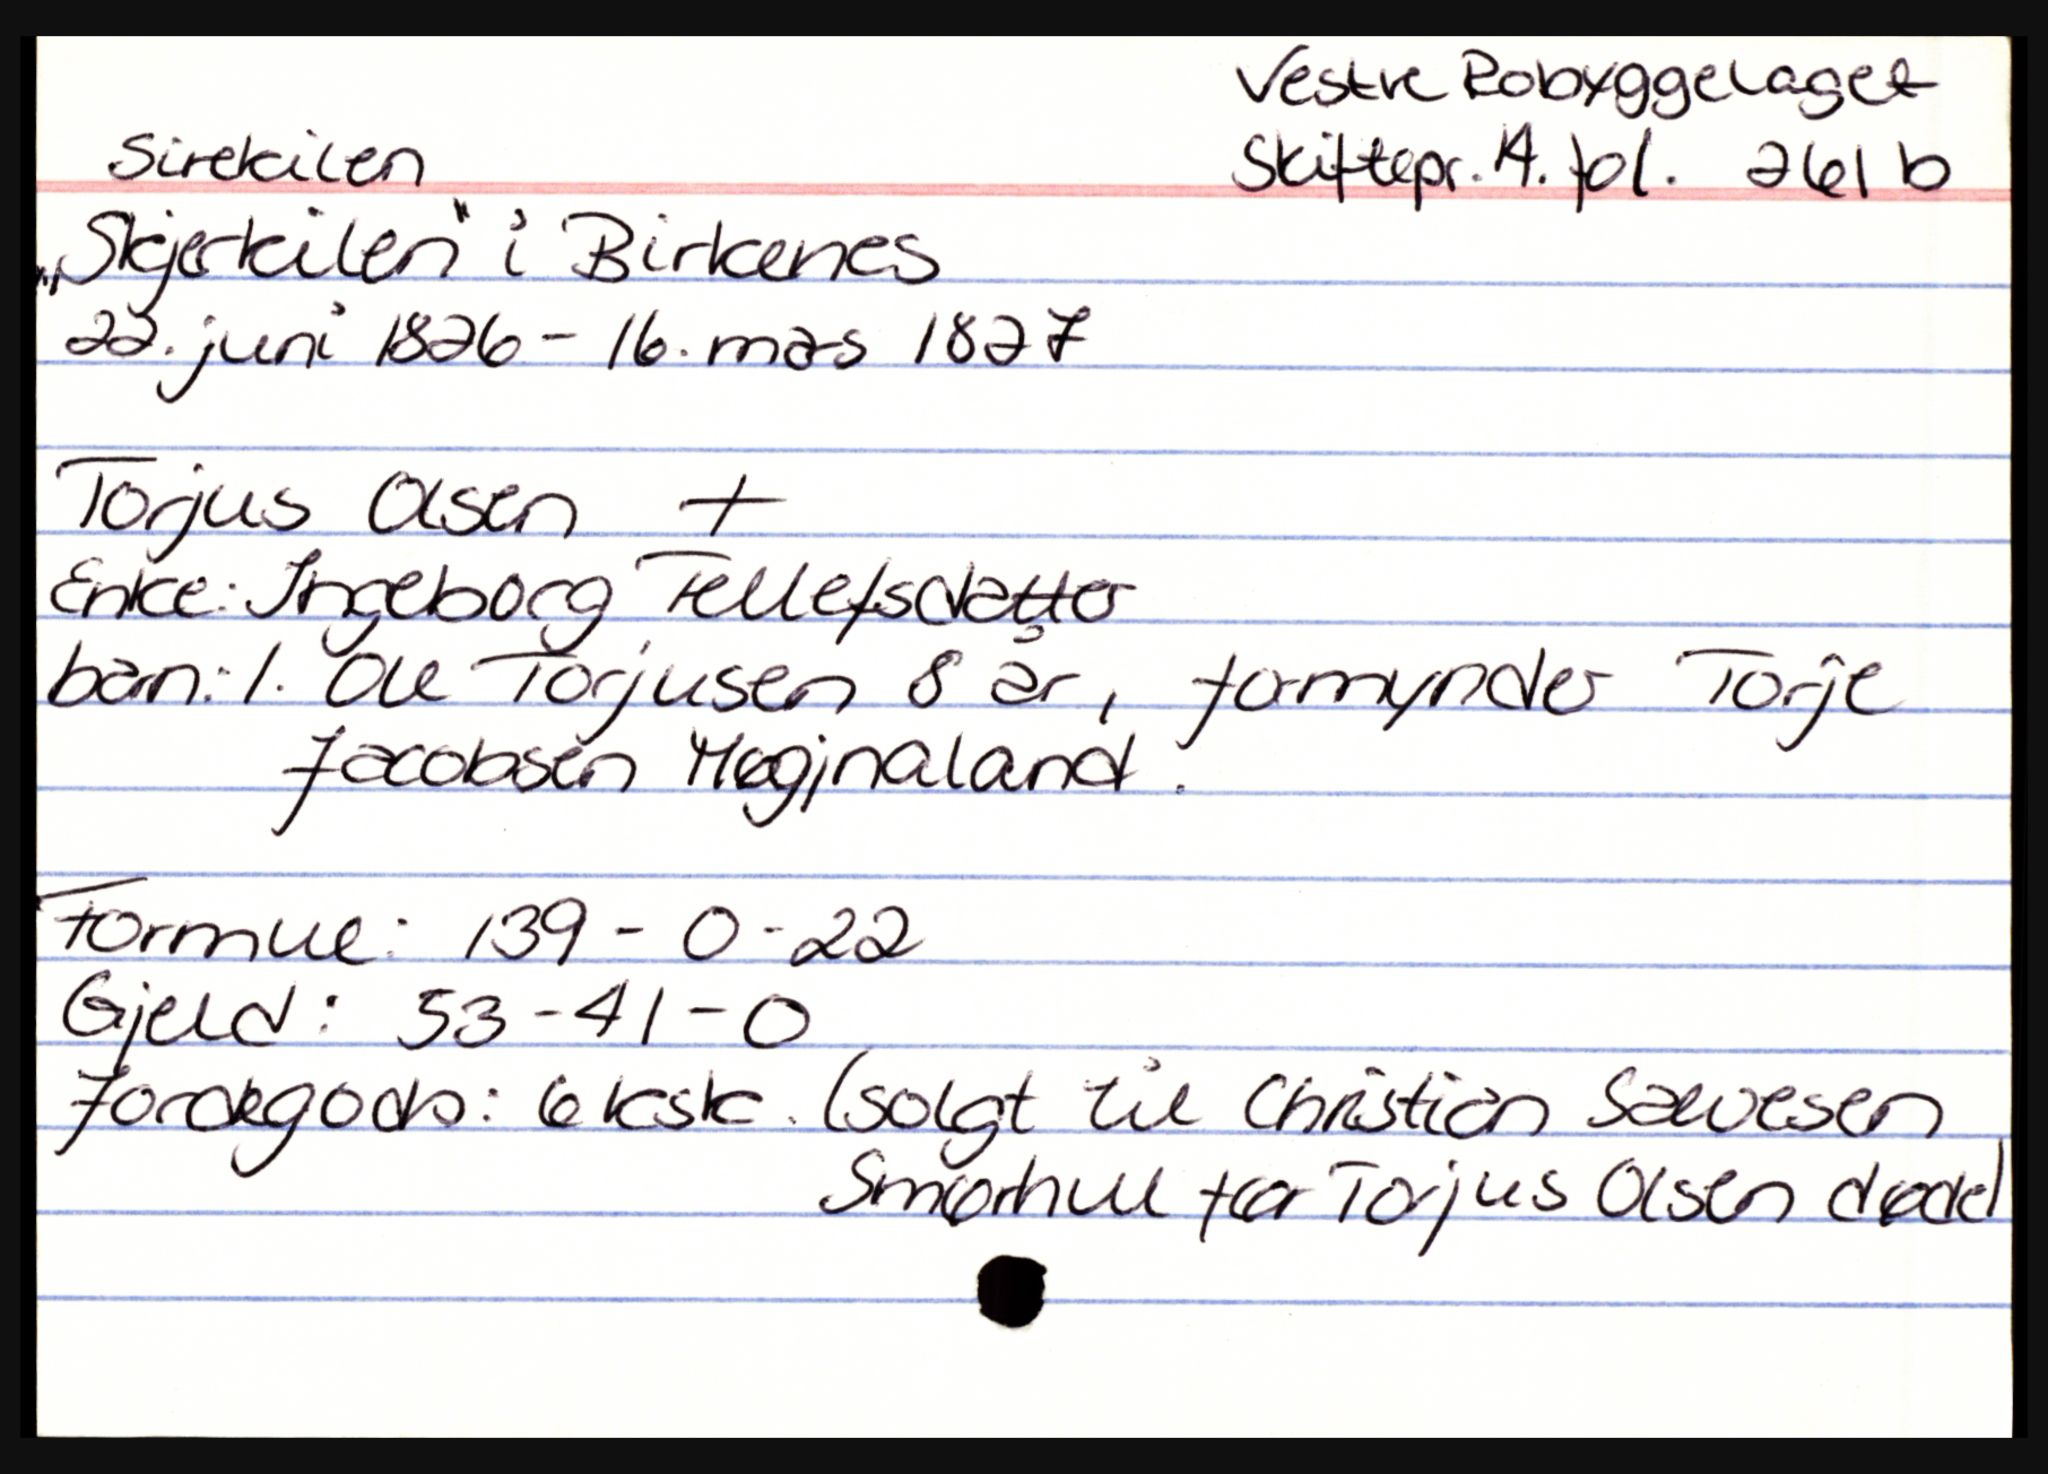 Vestre Robyggelaget
Sirekilen
Skiftepr. 14. fol. 261 b
"Skjerkilen" i Birkenes
22. juni 1826 - 16. mas 1827
Torjus Olsen +
Enke: Ingeborg Tellefsdatter
barn: 1. Ole Torjusen 8 år, formynder Torje
Jacobsen Høgjnaland.
Formue: 139 - 0 - 22
Gjeld: 53 - 41 - 0
Jordegods: 6 ksk. (solgt til Christian Salvesen
Smørhull før Torjus Olsen døde)